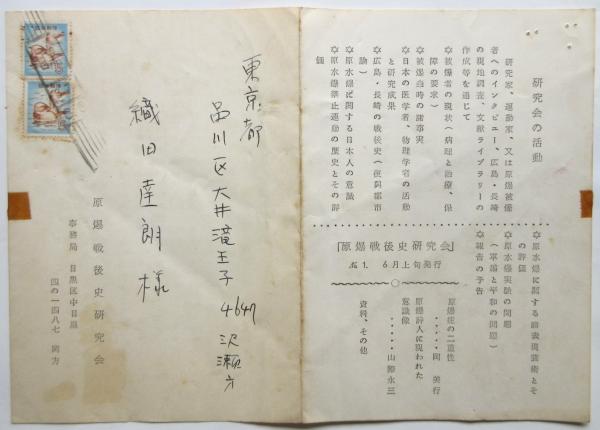 研究会の活動
研究家、運動家、又は原爆被爆
者へのインタビュー、広島・長崎
の現地調査、文献ライブラリーの
作成等を通じて
✡被爆者の現状（病理と治療、保
障の要求）
✡被爆当時の諸事実
✡日本の医学者、物理学者の活動
と研究成果
✡広島・長崎の戦後史（復興都市
論）
✡原水爆に関する日本人の意識
✡原水爆禁止運動の歴史とその評
価
✡原水爆に関する諸表現芸術とそ
の評価
✡原水爆実験の問題
（軍備と平和の問題）
✡報告の予告
「原爆戦後史研究会」
№1. 6月上旬発行
原爆症の二重性
・・・・・・岡 美行
原爆詩人に現われた
意識像
・・・・・・山勝永三
資料、その他
東京都
品川区大井滝王子 4647 沢瀬方
織田達朗様
原爆戦後史研究会
事務局 目黒区中目黒
四の一四八七 岡方